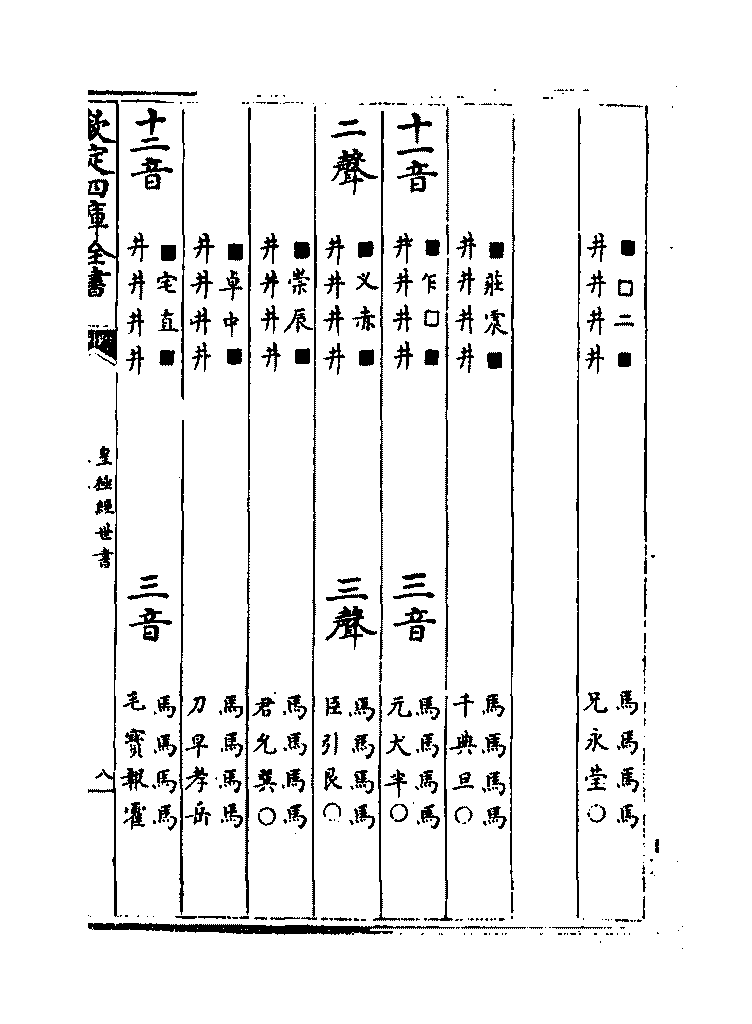 ■□二■
井井井井
馬馬馬馬
兄永瑩○
■莊震■
井井井井
馬馬馬馬
千典旦○
十一音
■乍□■
井井井井
三音
馬馬馬馬
元犬半○
二聲
■叉赤■
井井井井
三聲
馬馬馬馬
臣引艮○
■崇辰■
井井井井
馬馬馬馬
君允巽○
■卓中■
井井井井
馬馬馬馬
刀早孝岳
十二音
■宅直■
井井井井
三音
馬馬馬馬
毛寳報霍
欽定四庫全書
皇極經世書
八